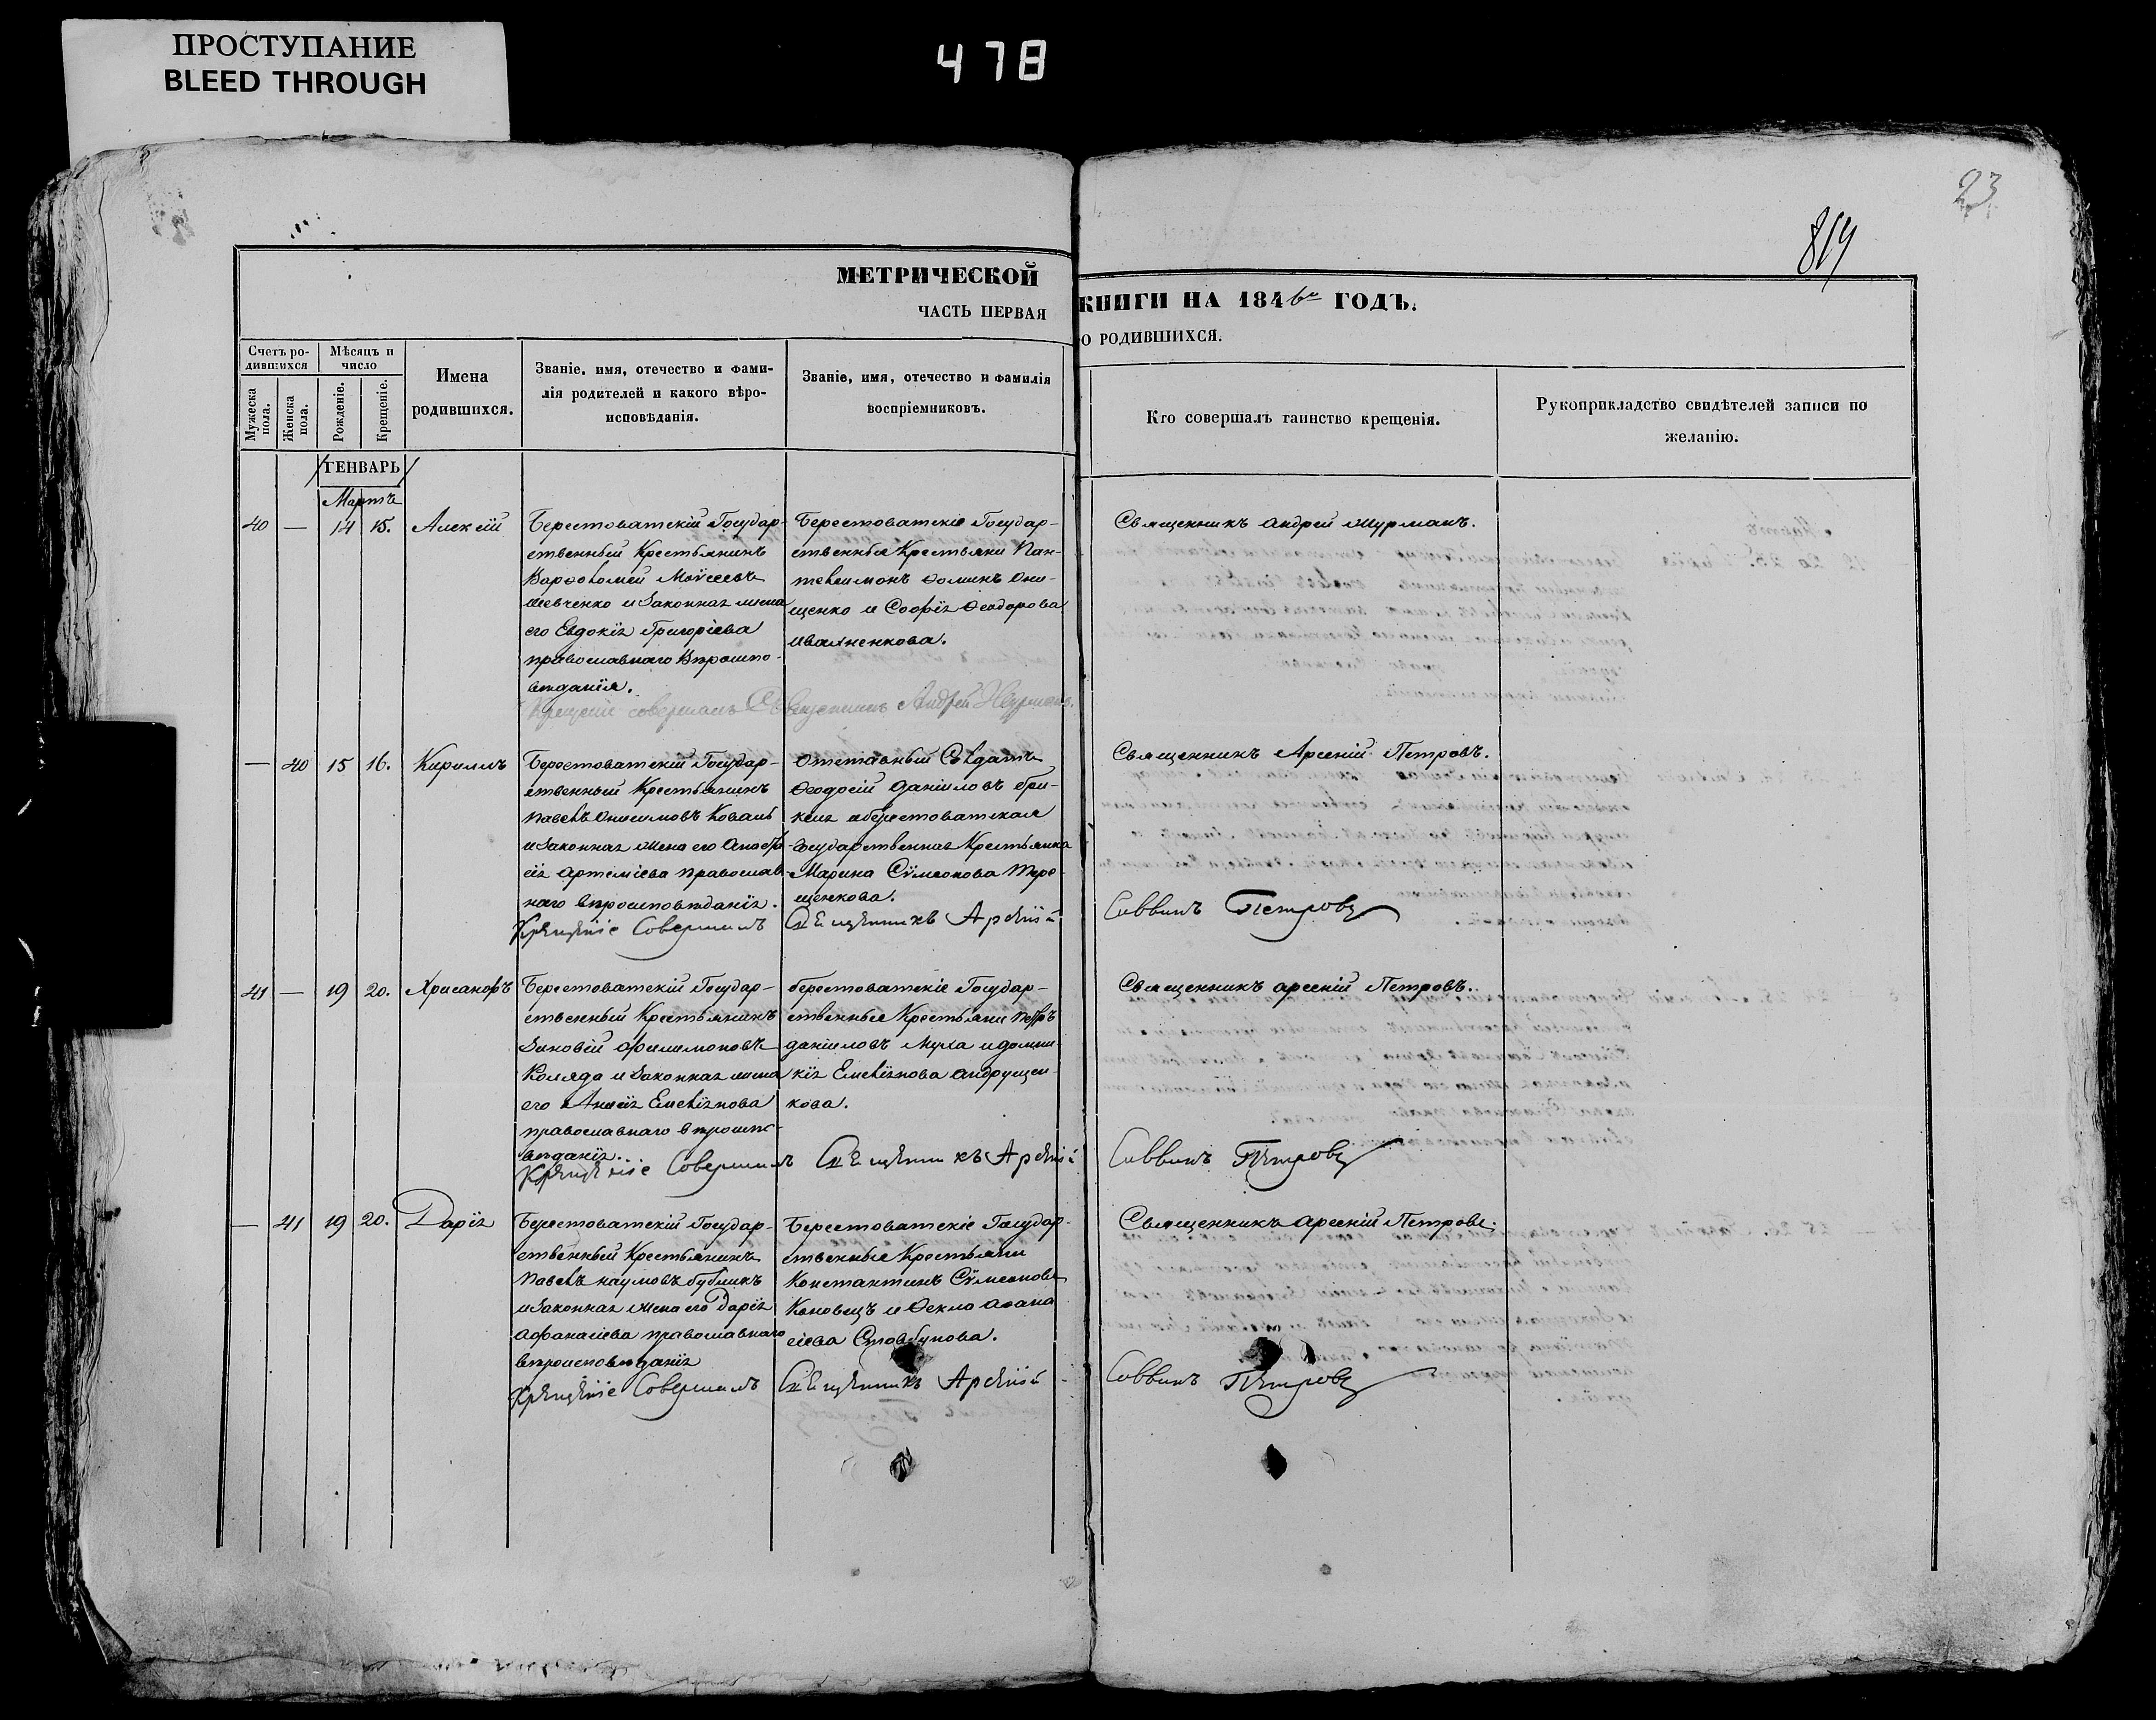 ПРОСТУПАНИЕ
BLEED THROUGH
478
23
819
МЕТРИЧЕСКОЙ
КНИГИ НА 1846го ГОДЪ.
ЧАСТЬ ПЕРВАЯ
О РОДИВШИХСЯ.
Счетъ ро-
дившихся
Мѣсяцъ и
число
Мужеска
пола.
Женска
пола.
Рожденіе.
Крещеніе.
Имена
родившихся.
Званіе, имя, отечество и фами-
лія родителей и какого вѣро-
исповѣданія.
Званіе, имя, отечество и фамилія
воспріемниковъ.
Кто совершалъ таинство крещенія.
Рукоприкладство свидѣтелей записи по
желанію.
ГЕНВАРЬ
Мартъ
40 — 14 15. Алексій
Берестоватскій Государ-
ственный Крестьянинъ
Варѳоломей Моѵсеевъ
Шевченко и Законная жена
его Евдокія Григоріева
православнаго Вѣроиспо-
вѣданія.
Берестоватскіе Государ-
ственные Крестьяни Пан-
телеимонъ Ѳоминъ Они-
щенко и Софія Ѳеодорова
Иваненкова.
Священникъ Андрей Журманъ.
Крещеніе совершалъ Священникъ Андрей Журманъ.
— 40 15 16. Кириллъ
Берестоватскій Государ-
ственный Крестьянинъ
Павелъ Онисимовъ Коваль
и Законная жена его Анаста
сія Артеміева Православ-
наго вѣроисповѣданія.
Отставный Солдатъ
Ѳеодосій Даніиловъ
и берестоватская
Государственная Крестьянка
Марина Сѵмеонова Тере-
щенкова.
Священникъ Арсеній Петровъ.
Крещеніе Совершилъ Священникъ Арсеній Саввинъ Петровъ
41 — 19 20. Хрисанфъ
Берестоватскій Государ-
ственный Крестьянинъ
Зиновій Филимоновъ
Коляда и Законная жена
его Анасія Емельянова
православнаго вѣроиспо-
вѣданія.
берестоватскіе Государ-
ственные Крестьяни Петръ
даніиловъ Муха и домни-
кія Емельянова Андрущен-
кова.
Священникъ арсеній Петровъ.
Крещеніе Совершилъ Священникъ Арсеній Саввинъ Петровъ
— 41 19 20. Дарія
Берестоватскій Государ-
ственный Крестьянинъ
Павелъ наумовъ бубликъ
и Законная жена его Дарія
Афанасіева православнаго
вѣроисповѣданія
Берестоватскіе Государ-
ственные Крестьяни
Константинъ Сѵмеоновъ
Коновецъ и Ѳекла Аѳана
сіева Стовбунова.
Священникъ Арсеній Петровъ.
Крещеніе Совершилъ Священникъ Арсеній Саввинъ Петровъ